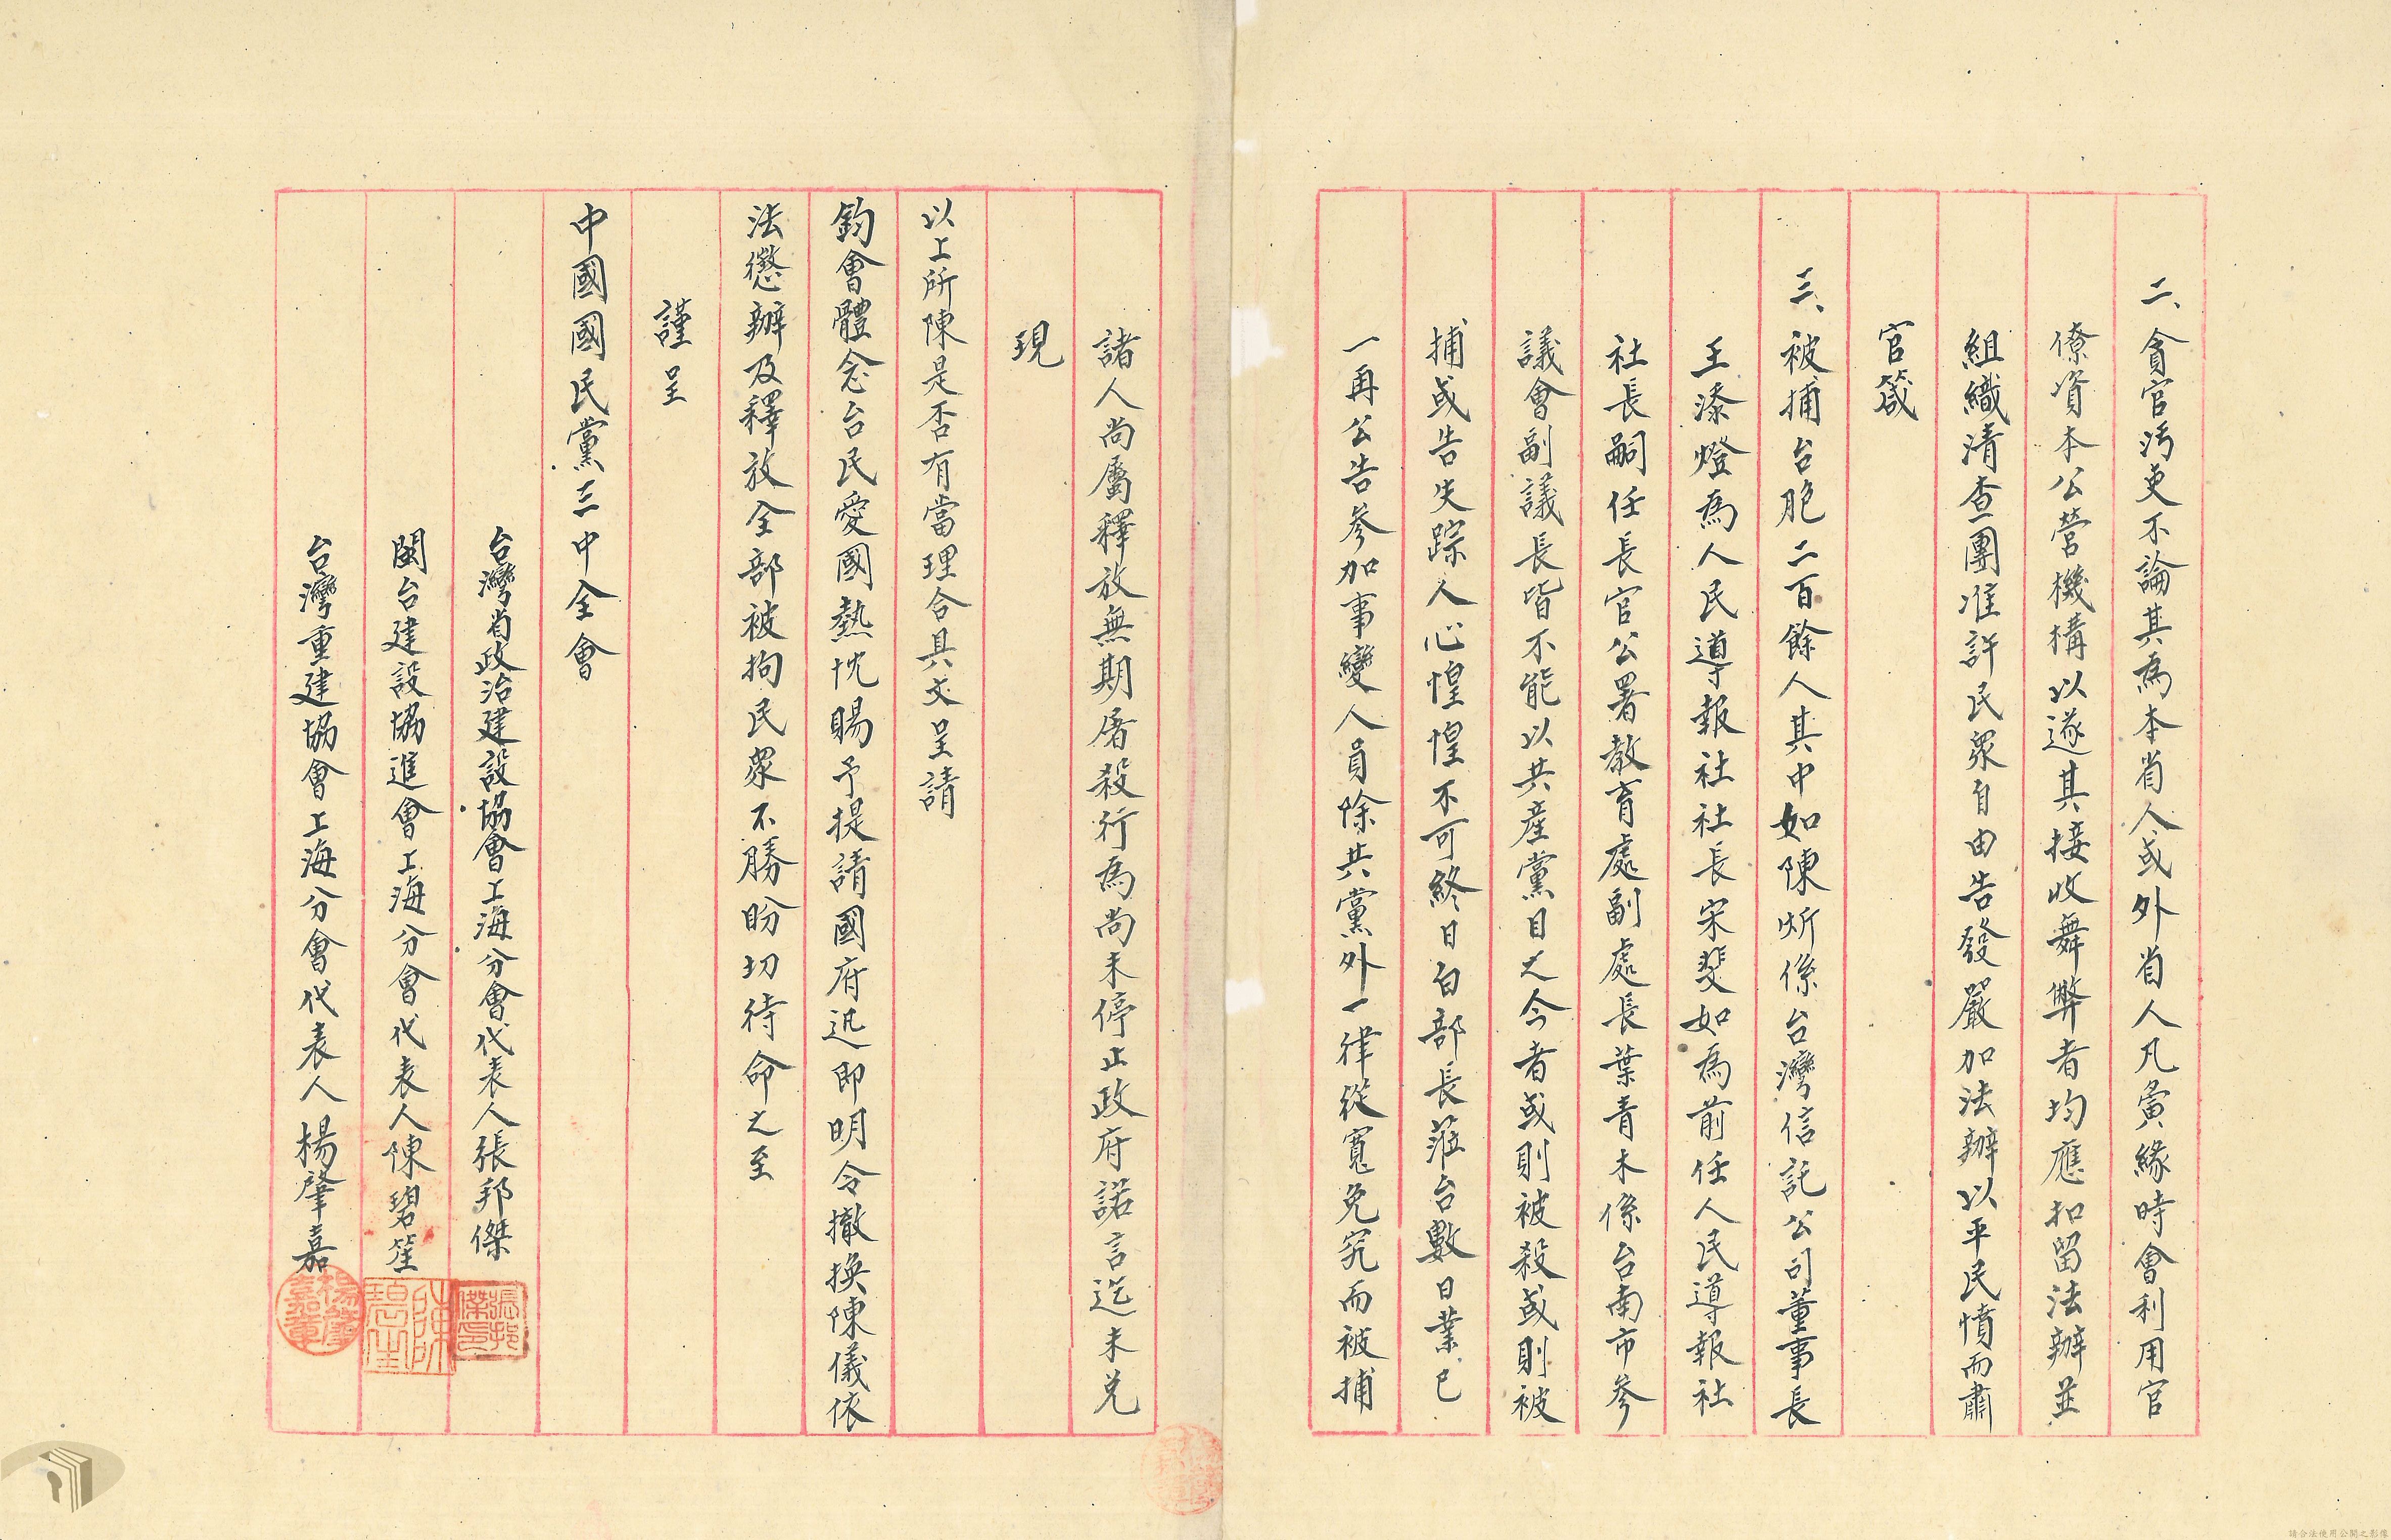 二、貪官污吏不論其為本省人或外省人凡夤緣時會利用官
僚資本公營機構以遂其接收舞弊者均應扣留法辦並
組織清查團准許民眾自由告發嚴加法辦以平民憤而肅
官箴
三、被捕台胞二百餘人其中如陳炘係台灣信託公司董事長
王添燈為人民導報社社長宋斐如為前任人民導報社
社長嗣任長官公署教育處副處長葉青木係台南市參
議會副議長皆不能以共產黨目之今者或則被殺或則被
捕或告失踪人心惶惶不可終日白部長蒞台數日業已
一再公告參加事變人員除共黨外一律從寬免究而被捕
諸人尚屬釋放無期屠殺行為尚未停止政府諾言迄未兌
現
以上所陳是否有當理合具文呈請
鈞會體念台民愛國熱忱賜予提請國府迅即明令撤換陳儀依
法懲辦及釋放全部被拘民眾不勝盼切待命之至
謹呈
中國國民黨三中全會
台灣省政治建設協會上海分會代表人張邦傑
張邦傑印
閩台建設協進會上海分會代表人陳碧笙
陳碧笙
台灣重建協會上海分會代表人楊肇嘉
楊肇嘉章
請合法使用公開之影像